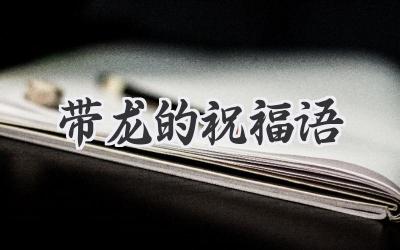 带龙的祝福语